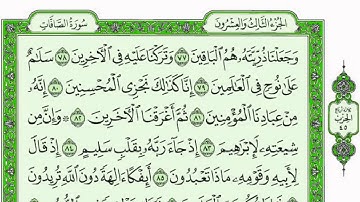 الجزء الثالث والعشرون
سورة الصافات
وَجَعَلْنَا ذُرِّيَّتَهُۥ هُمُ ٱلْبَاقِينَ ٧٧ وَتَرَكْنَا عَلَيْهِ فِى ٱلْـَٔاخِرِينَ ٧٨ سَلَـٰمٌ
عَلَىٰ نُوحٍ فِى ٱلْعَـٰلَمِينَ ٧٩ إِنَّا كَذَٰلِكَ نَجْزِى ٱلْمُحْسِنِينَ ٨٠ إِنَّهُۥ
مِنْ عِبَادِنَا ٱلْمُؤْمِنِينَ ٨١ ثُمَّ أَغْرَقْنَا ٱلْـَٔاخَرِينَ ٨٢ ۞ وَإِنَّ مِن
شِيعَتِهِۦ لَإِبْرَٰهِيمَ ٨٣ إِذْ جَآءَ رَبَّهُۥ بِقَلْبٍ سَلِيمٍ ٨٤ إِذْ قَالَ
لِأَبِيهِ وَقَوْمِهِۦ مَاذَا تَعْبُدُونَ ٨٥ أَئِفْكًا ءَالِهَةً دُونَ ٱللَّهِ تُرِيدُونَ
الحزب
٤٥